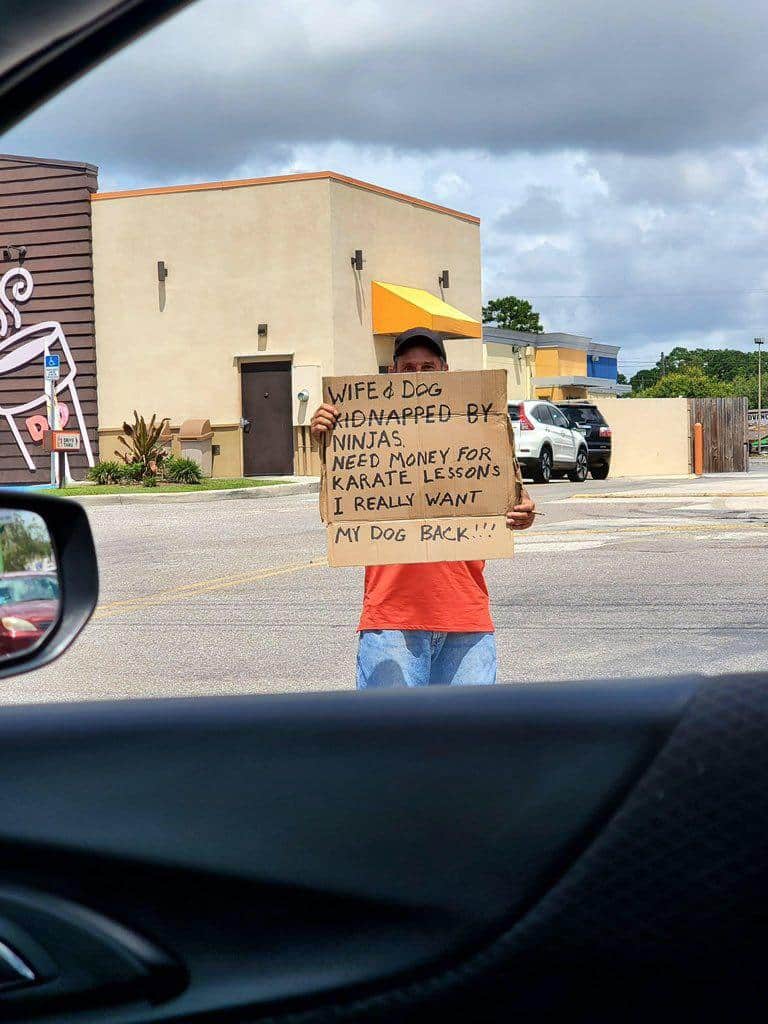 WIFE & DOG
KIDNAPPED BY
NINJAS.
NEED MONEY FOR
KARATE LESSONS
I REALLY WANT
MY DOG BACK!!!